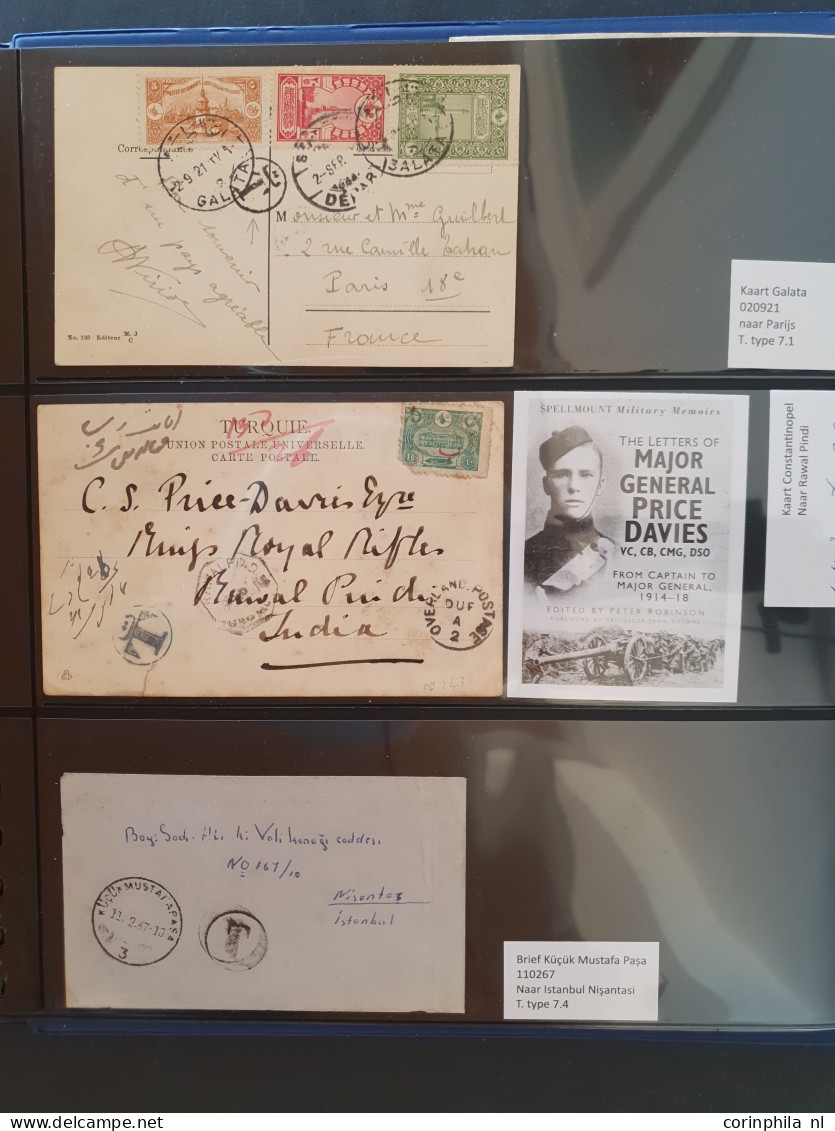 Correspondance
GALATA
2-SEP
DEPART
GALATA
T
un souvenir
d'un pays agréable
Monsieur et Mme Guilbert
2 rue Camille Tahan
Paris 18e
France
No. 120 Editeur M. J
C
Kaart Galata
020921
naar Parijs
T. type 7.1
TURQUIE.
UNION POSTALE UNIVERSELLE.
CARTE POSTALE.
C. S. Price-Davies Esqre
Kings Royal Rifles
Rawal Pindi
India
T
OVERLAND POSTAGE
DUE
A
2
SPELLMOUNT Military Memoirs
THE LETTERS OF
MAJOR
GENERAL
PRICE
DAVIES
VC, CB, CMG, DSO
FROM CAPTAIN TO
MAJOR GENERAL,
1914-18
EDITED BY PETER ROBINSON
FOREWORD BY PROFESSOR JOHN BOURNE
Kaart Constantinopel
Naar Rawal Pindi
Vali Konağı caddesi
No 167/10
Nişantaş
İstanbul
KÜÇÜK MUSTAFAPAŞA
11.2.67-10
3
T
Brief Küçük Mustafa Paşa
110267
Naar Istanbul Nişantasi
T. type 7.4
corinphila.nl